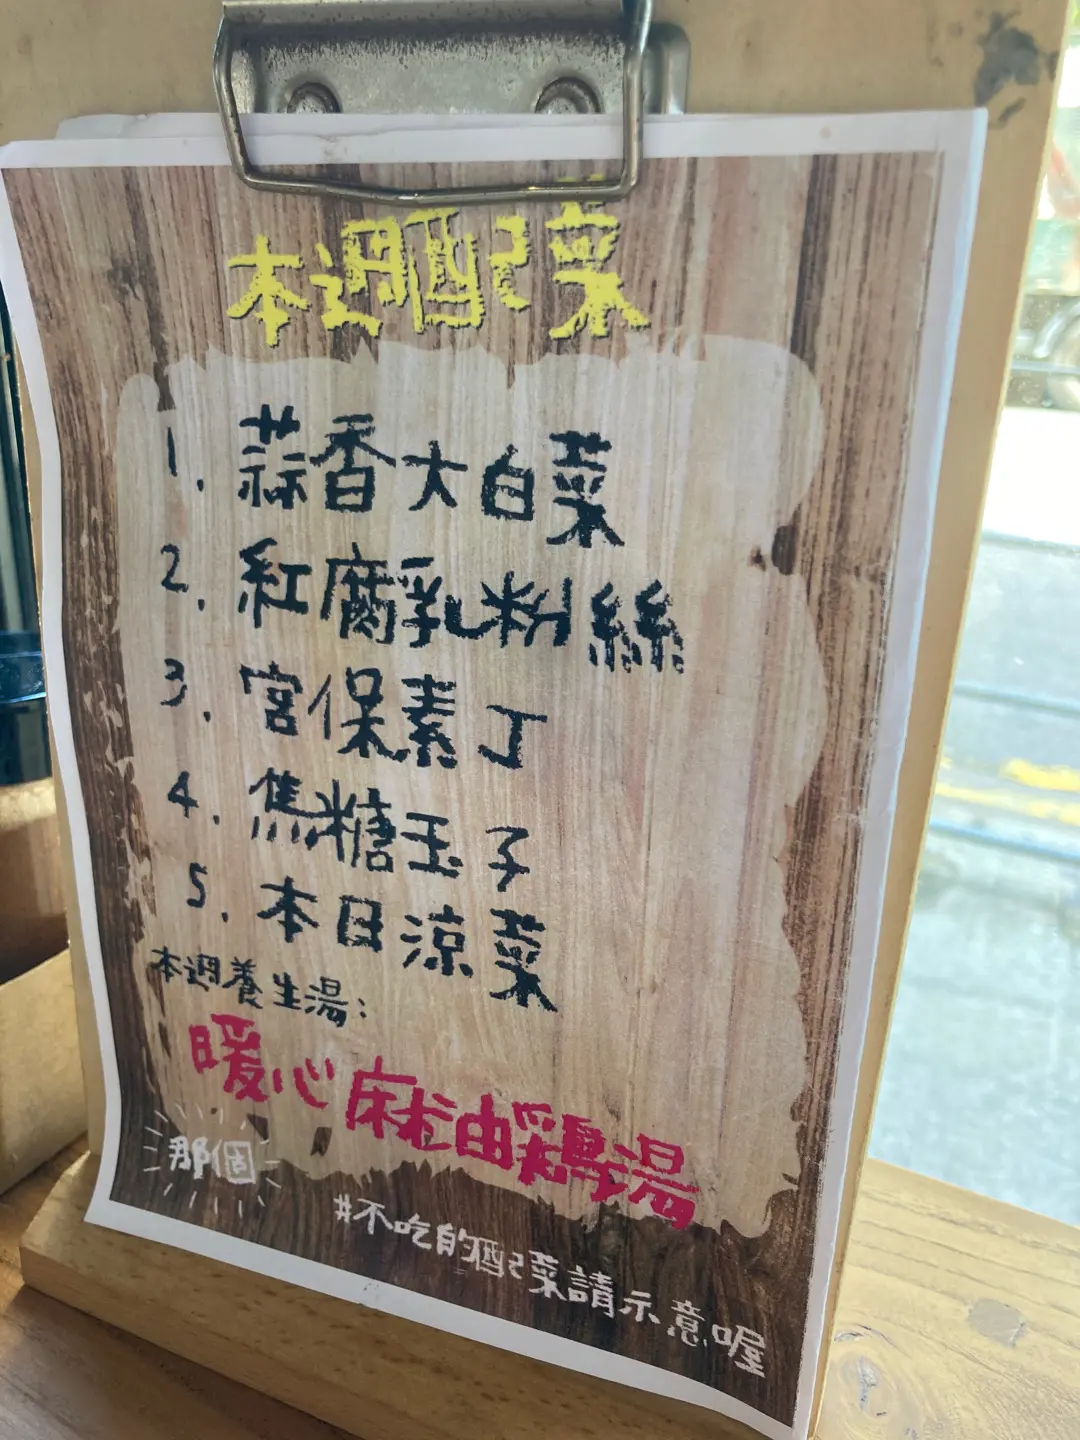 本週配菜
1. 蒜香大白菜
2. 紅腐乳粉絲
3. 宮保素丁
4. 焦糖玉子
5. 本日涼菜
本週養生湯:
暖心麻油雞湯
那個
#不吃的配菜請示意喔